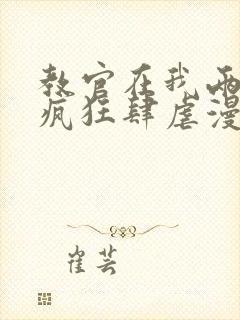 教官在我两
疯狂肆虐漫
崔芸